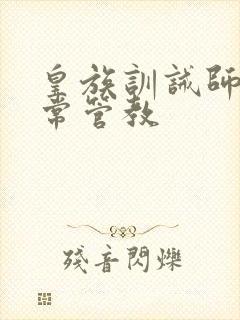 皇族訓誡師
常管教
殘音閃爍